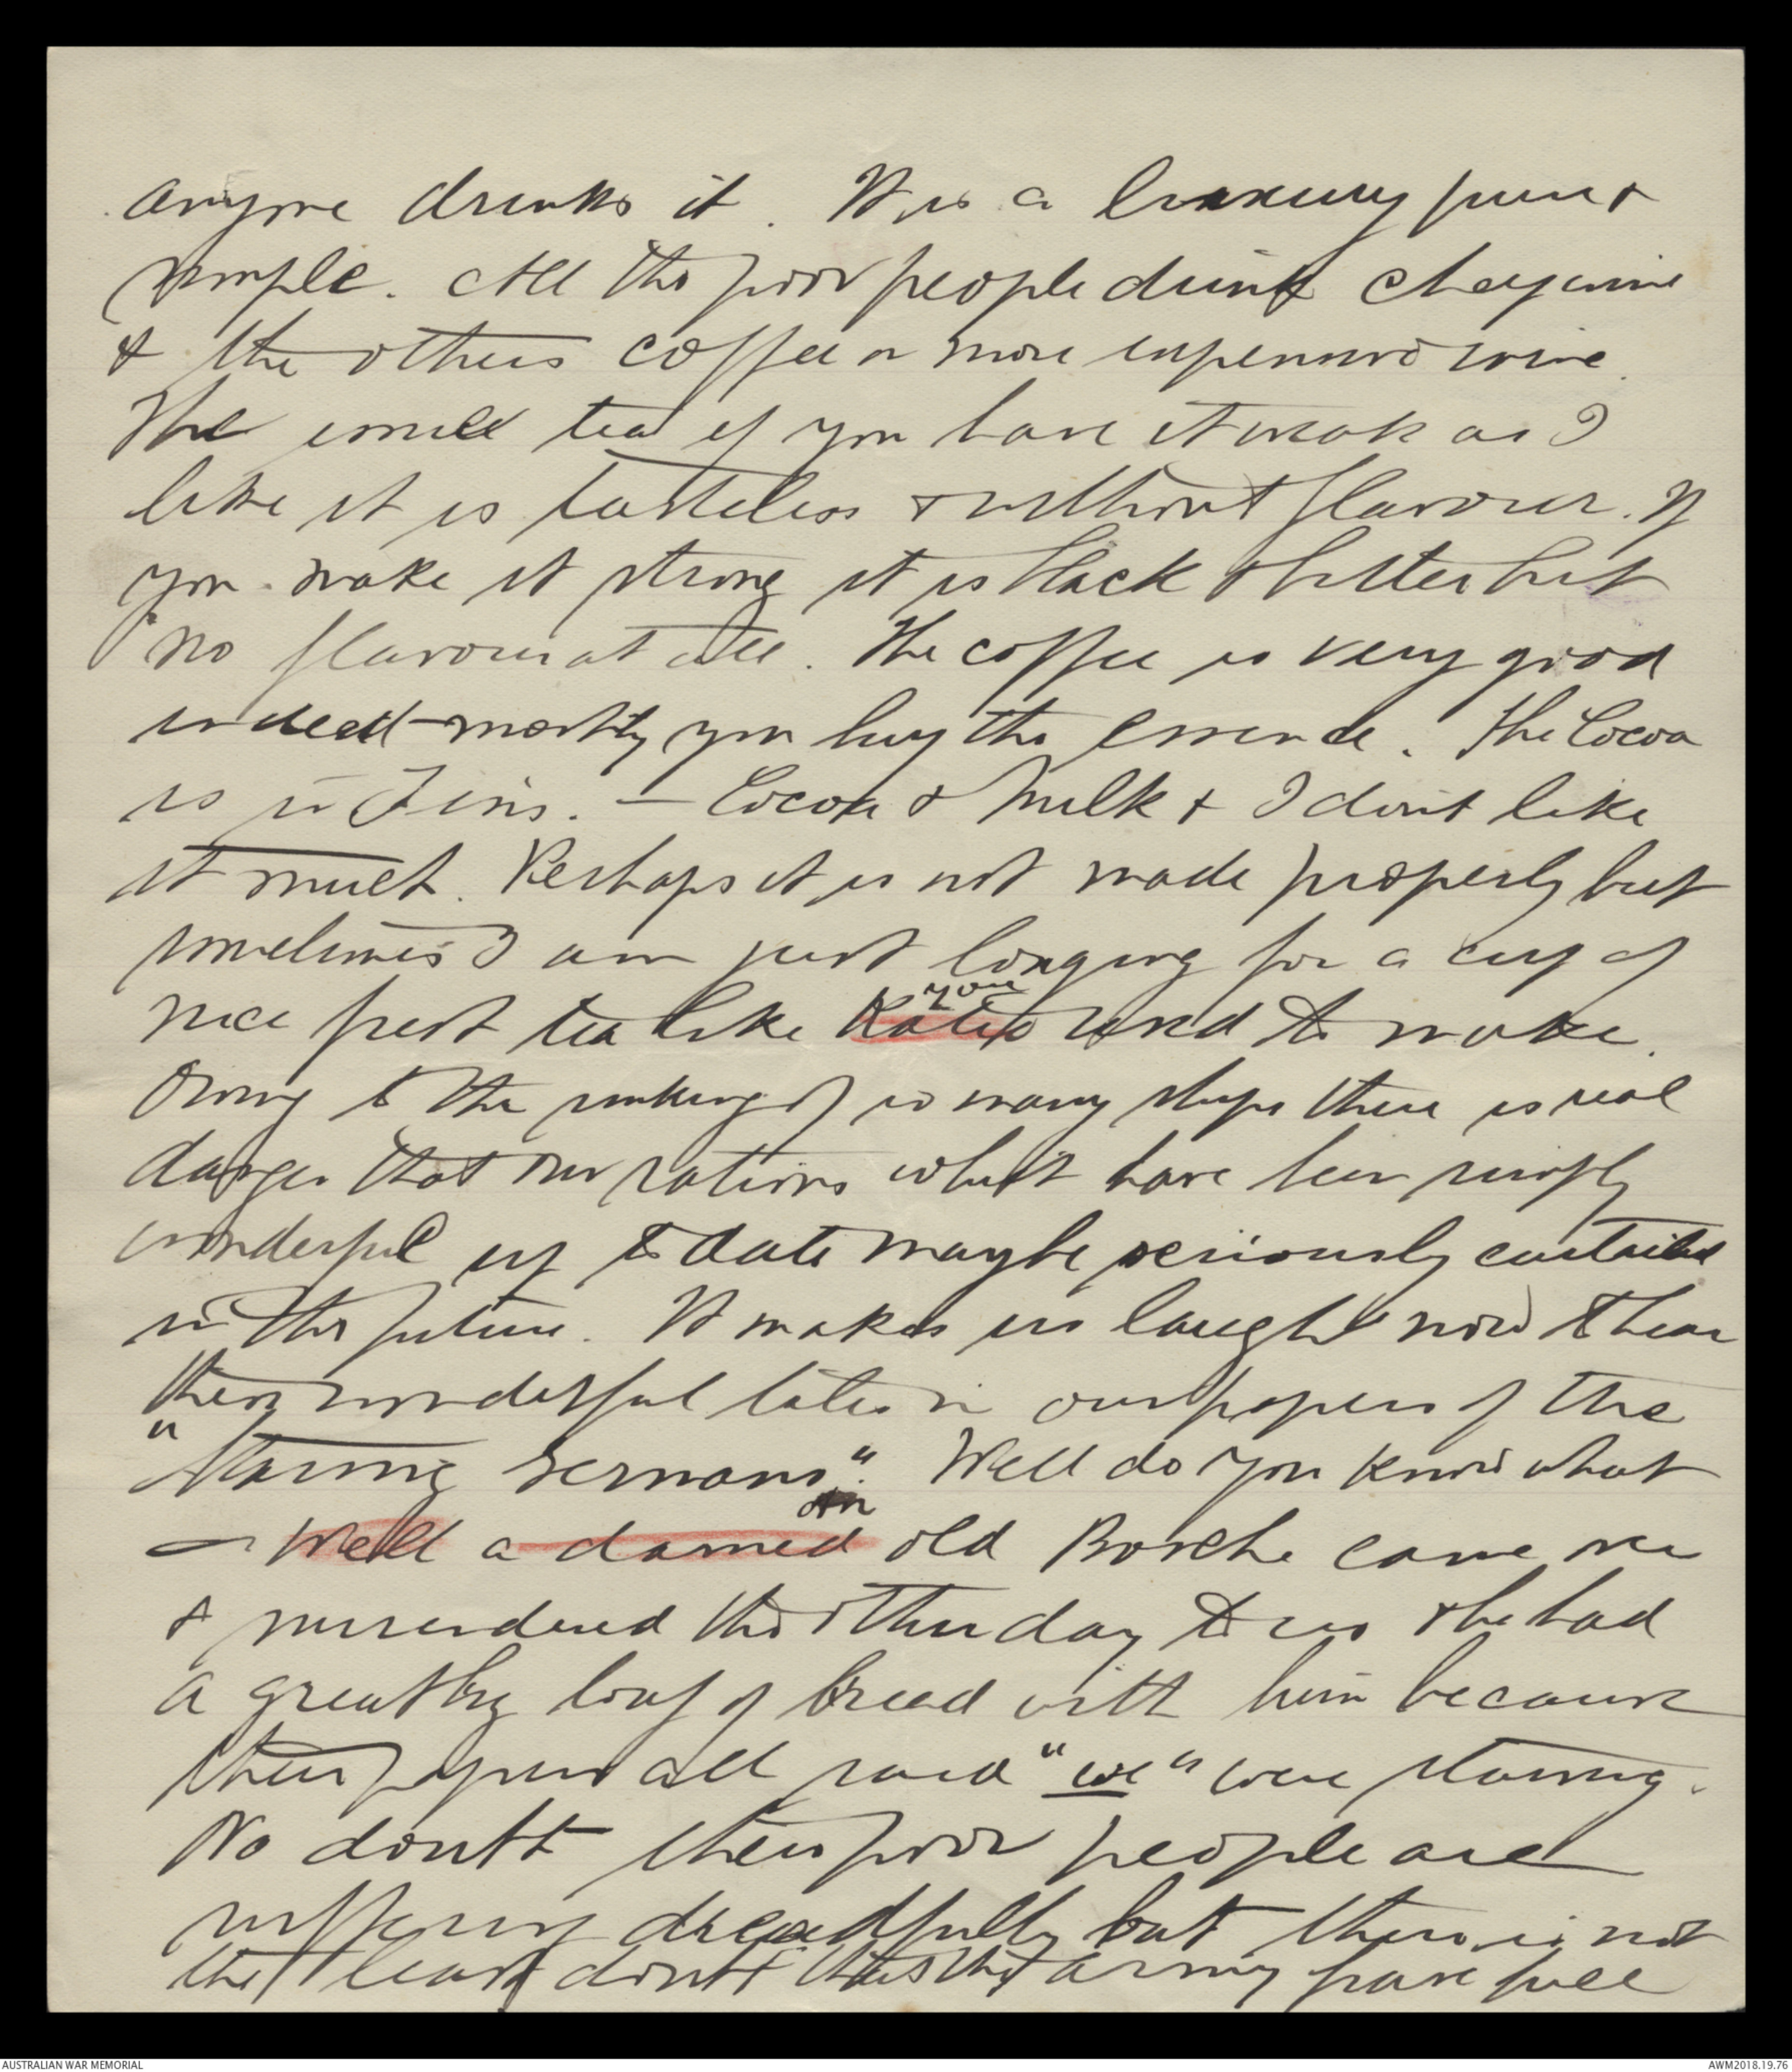 anyone drinks it. It is a luxury pure &
simple. All the poor people drink cheap wine
& the others coffee or more expensive wine.
The small tea if you have it weak as I
like it is tasteless & without flavour. If
you make it strong it is black & bitter but
no flavour at all. The coffee is very good
indeed - mostly you buy the essence. The Cocoa
is in Tins. - Cocoa & Milk & I don't like
it much. Perhaps it is not made properly but
sometimes I am just longing for a cup of
you
nice fresh tea like Katie used to make.
Owing to the sinking of so many ships there is real
danger that our rations which have been simply
wonderful up to date maybe seriously curtailed
in the future. It makes us laugh now to hear
these wonderful tales in our papers of the
"Starving Germans". Well do you know what
an
- Well a damned old Bosche came over
& surrendered the other day to us & he had
a great big loaf of bread with him because
their papers all said "we" were starving.
No doubt their poor people are
suffering dreadfully but there is not
the least doubt that the army have full
AUSTRALIAN WAR MEMORIAL
AWM2018.19.76